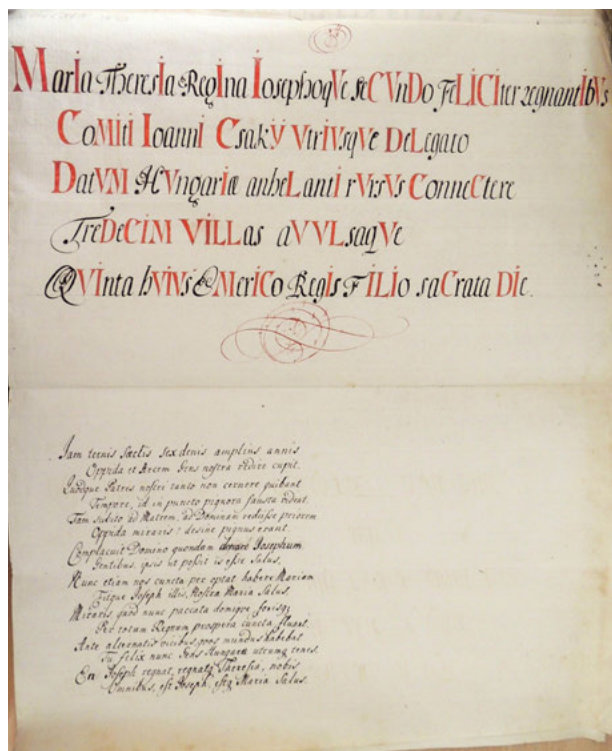 MarIa TheresIa RegIna IosephoqVe seCVnDo FeLICIter regnantIbVs
CoMItI IoannI CsakÿVtrIVsqVe DeLegato
DatVM HVngariæ anheLantI rVrsVs ConneCtere
TreDeCIM VILLas aVVLsaqVe
QVInta hVIVs EMerICo RegIs FILIo saCrata DIe.
Jam ternis Sæclis sex denis amplius annis
Oppida et Arcem Gens nostra redire cupit.
Quodque Patres nostri tanto non cernere quibant
Tempore, id in puncto pignora fausta vident.
Tam subito ad Matrem, ad Dominam rediisse priorem
Oppida miraris? desine pignus erant.
Complacuit Domino quondam Josephum
Gentibus, ipsis ut possit is esse Salus,
Nunc etiam nos cuncta per optat habere Mariam
Fitque Joseph illis, Nostra Maria Salus,
Miraris, quod nunc paccata domique forisq;
Per totam Regnum prospera cuncta fluant.
Ante alternatis vicibus, quos mundus habebat
Tu felix nunc Gens Hungara utrumq tenes.
En Joseph regnat, regnatq Theresia, nobis
Omnibus, est Joseph, estq Maria Salus.